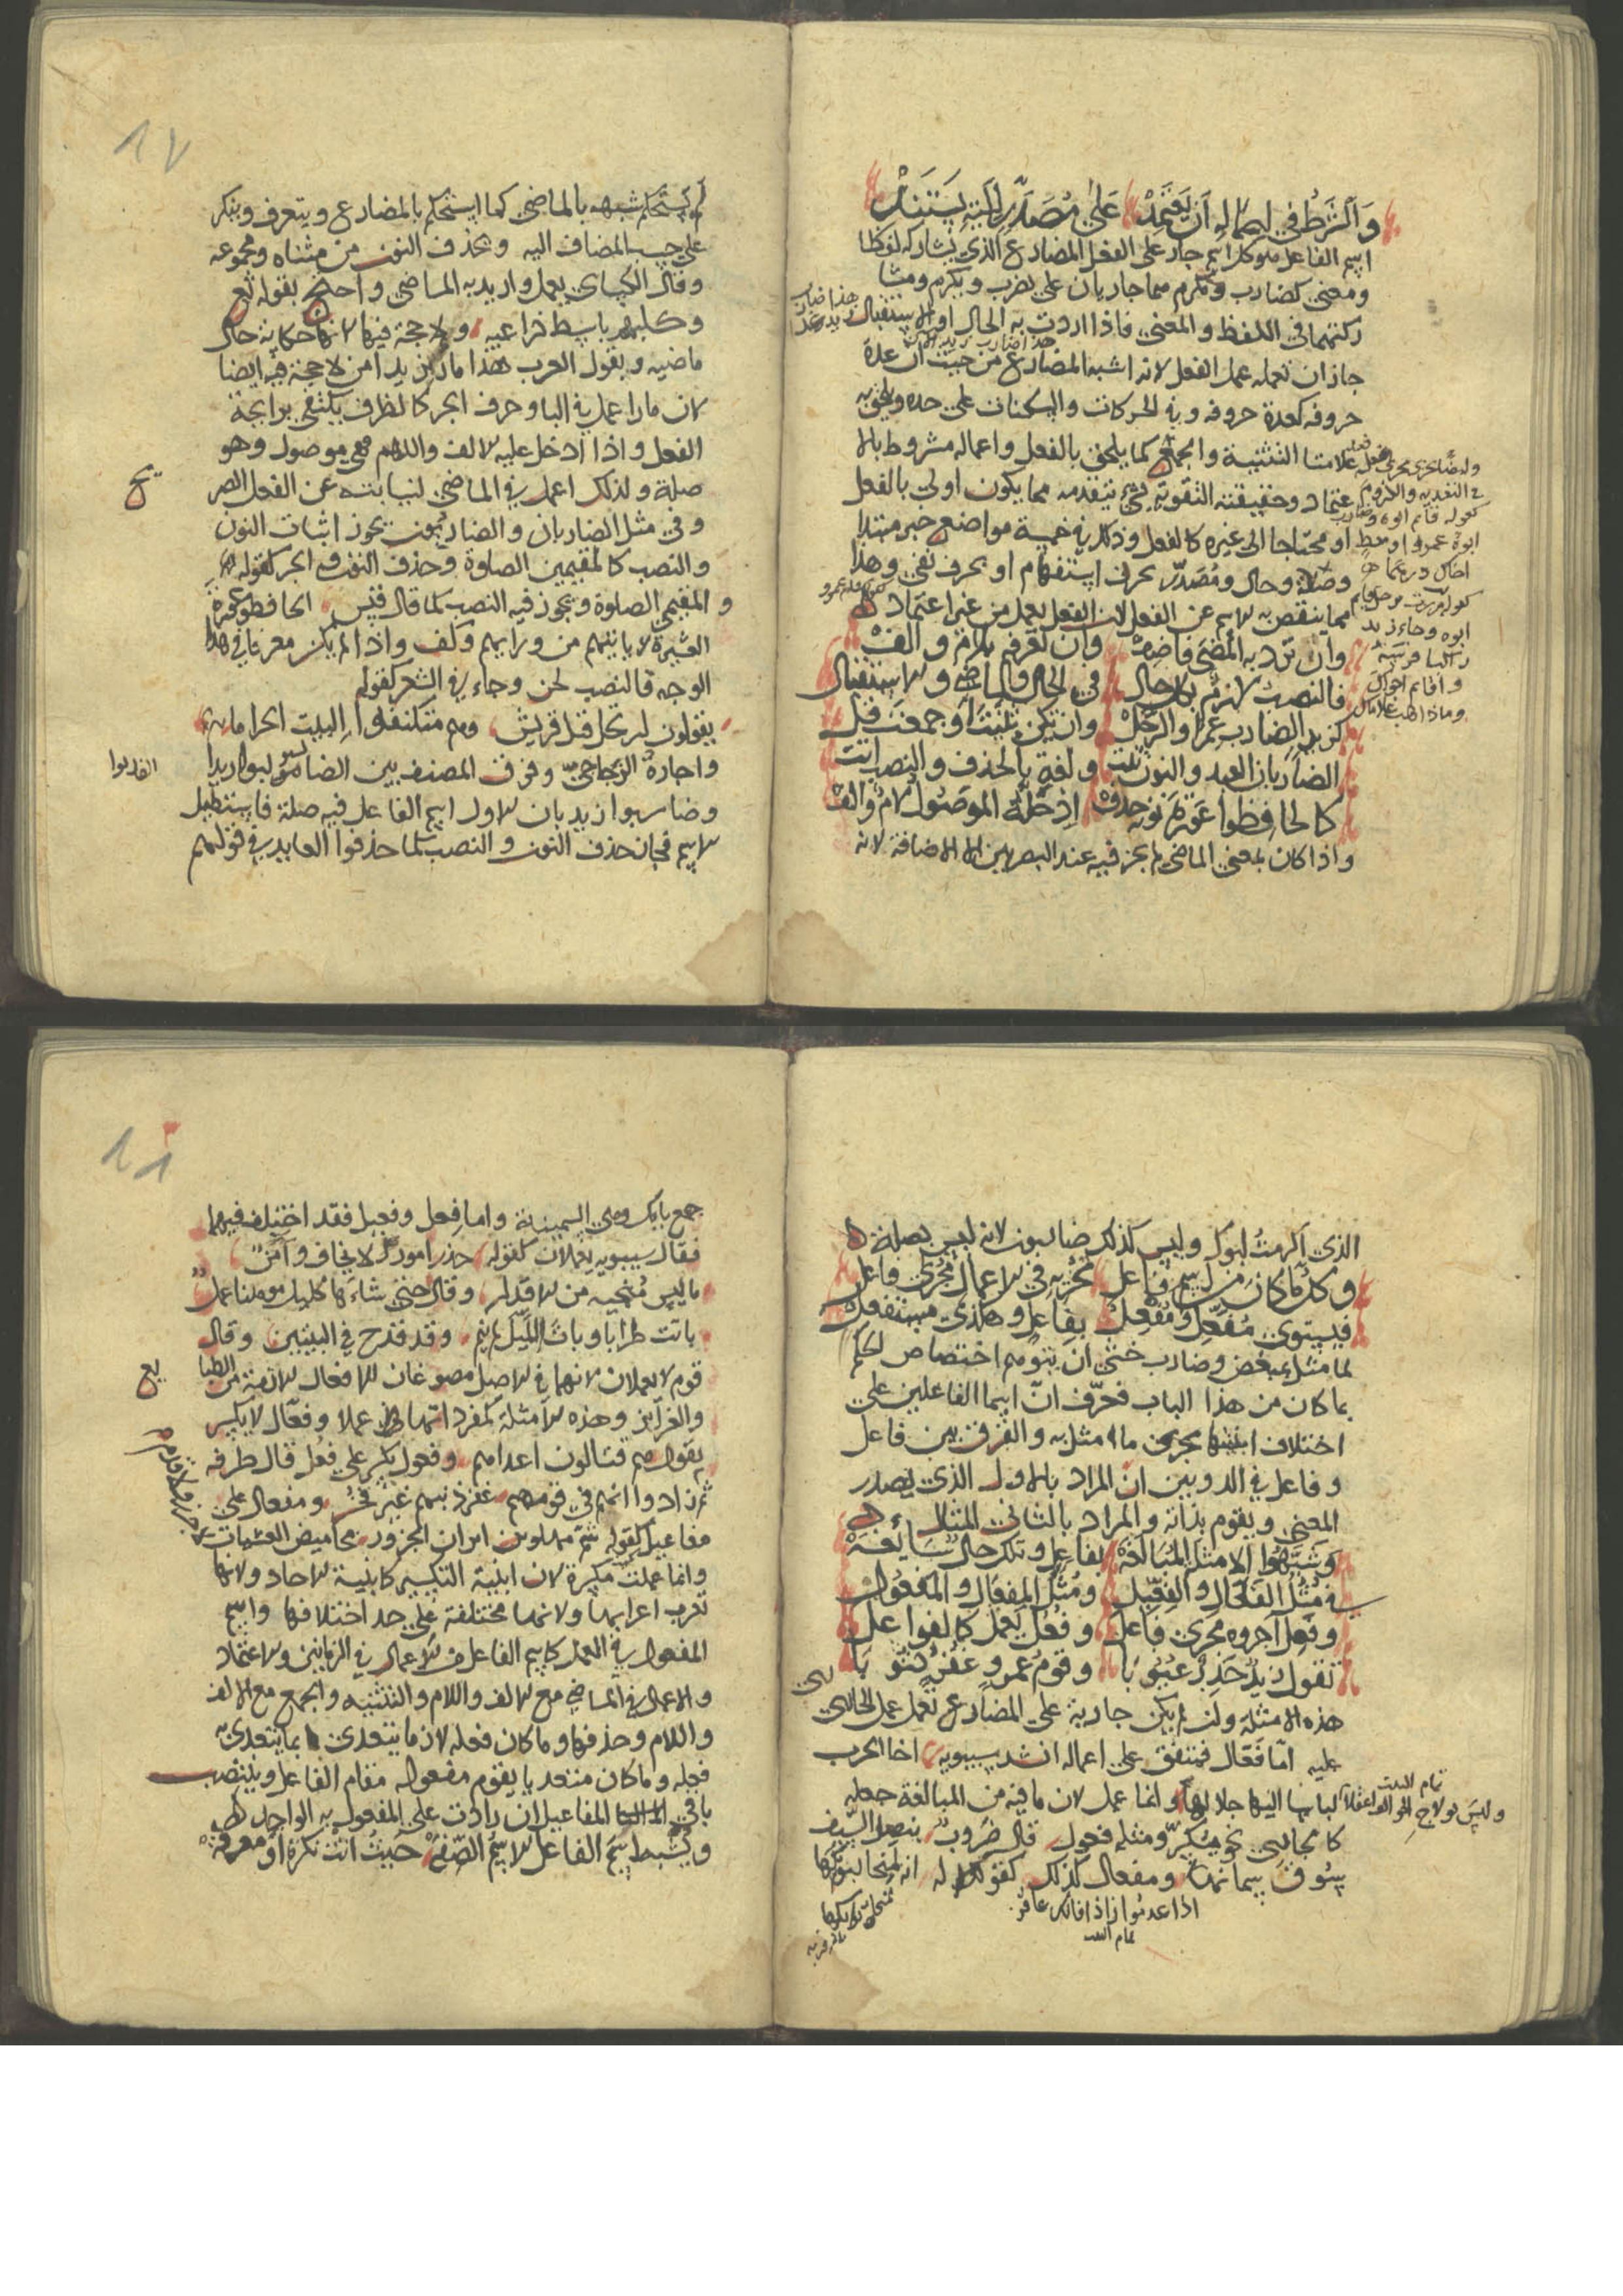 والشرط في إعماله أن يعتمد على مصدر لكنه يستند
اسم الفاعل هو كل اسم جار على الفعل المضارع الذي يشاركه لفظا
ومعنى كضارب ومكرم فهما جاريان على يضرب ويكرم ومشا
ركتهما في اللفظ والمعنى فاذا اردت به الحال او الاستقبال
جاز ان تعمله عمل الفعل لانه اشبه المضارع من حيث ان عدة
حروفه كعدة حروفه وفي الحركات والسكنات على حده ويلحق به
علامتا التثنية والجمع كما يلحق بالفعل واعماله مشروط بالا
عتماد وحقيقته التقوية بشيء يتقدمه مما يكون اولى بالفعل
او محتاجا الى غيره كالفعل وذلك في خمسة مواضع خبر مبتدا
وصلة وحال ومصدر بحرف استفهام او بحرف نفي وهذا
مما ينقص به الاسم عن الفعل لان الفعل يعمل من غير اعتماد
وان ترد به المضي فاضفه وان تعرفه بلام والف
فالنصب لازم بكل حال في الحال والماضي والاستقبال
كزيد الضارب عمرا والرجل وان تكن ثنيت او جمعت قل
الضاربان العبد والنون ثبت ولغة بالحذف والنصب اتت
كالحافظوا عورة نونه حذف اذ صلة الموصول لام والف
واذا كان بمعنى الماضي لم يجز فيه عند البصريين الا الاضافة لانه
١٧
لم يستحكم شبهه بالماضي كما استحكم بالمضارع ويتعرف ويتنكر
على حسب المضاف اليه وتحذف النون من مثناه ومجموعه
وقال الكساي يعمل واريد به الماضي واحتج بقوله تع
وكلبهم باسط ذراعيه ولا حجة فيها لانها حكاية حال
ماضيه وبقول العرب هذا مار بزيد امس لا حجة فيه ايضا
لان مارا عمل في البا وحرف الجر كالظرف يكتفي برايحة
الفعل واذا ادخل عليه الالف واللام فهي موصول وهو
صلة ولذلك اعمل في الماضي لنيابته عن الفعل الصر
يح
وفي مثل الضاربان والضاربون يجوز اثبات النون
والنصب كالمقيمين الصلوة وحذف النون والجر كقوله
والمقيمي الصلوة ويجوز فيه النصب كما قال قيس الحافظو عورة
العشيرة لا ياتيهم من ورايهم وكف واذا لم يكن معرفا في هذا
الوجه فالنصب لحن وجاء في الشعر كقوله
يقولون ارتحل قبل قريش وهم متكنفوا البيت الحراما
واجازه الزجاجي وفرق المصنف بين الضاربوا زيدا
وضاربوا زيد بان الاول اسم الفاعل فيه صلة فاستطيل
الاسم فجاز حذف النون والنصب كما حذفوا العايد في قولهم
الذي اكرمت ابوك وليس كذلك ضاربون لانه ليس بصلة
وكل ما كان من اسم فاعل تجريه في الاعمال مجرى فاعل
فيستوي مفعل ومفعل بفاعل وهكذى مستفعل
لما مثل بمبغض وضارب خشي ان يتوهم اختصاص الحكم
بما كان من هذا الباب فعرف ان اسما الفاعلين على
اختلاف ابنيتها يجري مجرى ما مثل به والفرق بين فاعل
وفاعل في الدوبين ان المراد بالاول الذي يصدر
المعنى ويقوم بذاته والمراد بالثاني المثلا
وشبهوا الامثل المبالغه بفاعل وتلك حال سايغه
في مثل الفعال والفعيل ومثل المفعال والمفعول
وفعل اجروه مجرى فاعل وفعل يعمل كالفواعل
تقول زيد حذر عيوبا وقوم عمرو غفر ذنوبا
هذه الامثلة ولن لم يكن جارية على المضارع تعمل عمل الجاري
عليه اما فعال فمتفق على اعماله انشد سيبويه اخا الحرب
لباسا اليها جلالها وانما عمل لان ما فيه من المبالغة جعله
وليس بولاج الخوالف اعقلا
تمام البيت
كالجاري نحو يكسر ومثله فعول قال ضروب بنصل السيف
سوق سمانها ومفعال كذلك كقولك له انه لمنحار بوايكها
اذا عدموا زادا فانك عاقر
تمام البيت
١٨
جمع بايك وهي السمينة واما فعل وفعيل فقد اختلف فيهما
فقال سيبويه يعملان كقوله حذر امورا لا تخاف وآمن
ما ليس منجيه من الاقدار وقال حتى شاءها كليل موهنا عمل
باتت طرابا وبات الليل لم ينم وقد قدح في البيتين وقال
قوم لا يعملان لانهما في الاصل مصوغان للافعال الاتية من الطبا
يع
والغرايز وهذه الامثلة كمفرداتها في عملا وفعال لا يكسر
يقول هم قتالون اعداءهم وفعول يكسر على فعل قال طرفه
ثم زادوا انهم في قومهم غفر ذنبهم غير فخر ومفعال على
مفاعيل كقوله شم مهاوين ابدان الجزور مخاميص العشيات
وانما عملت مكسرة لان ابنية التكسير كابنية الاحاد ولانها
تعرب اعرابها ولانها مختلفة على حد اختلافها واسم
المفعول في العمل كاسم الفاعل في الاعمال في الزمانين والاعتماد
والاعمال في الماضي مع الالف واللام والتثنيه والجمع مع الالف
واللام وحذفها وما كان فعله لازما يتعدى بما يتعدى به
فعله وما كان متعديا يقوم مفعوله مقام الفاعل وينتصب
باقي المفاعيل ان زادت على المفعول به الواحد
ويشبه اسم الفاعل الاسم الصفه حيث اتت نكرة او معرفه